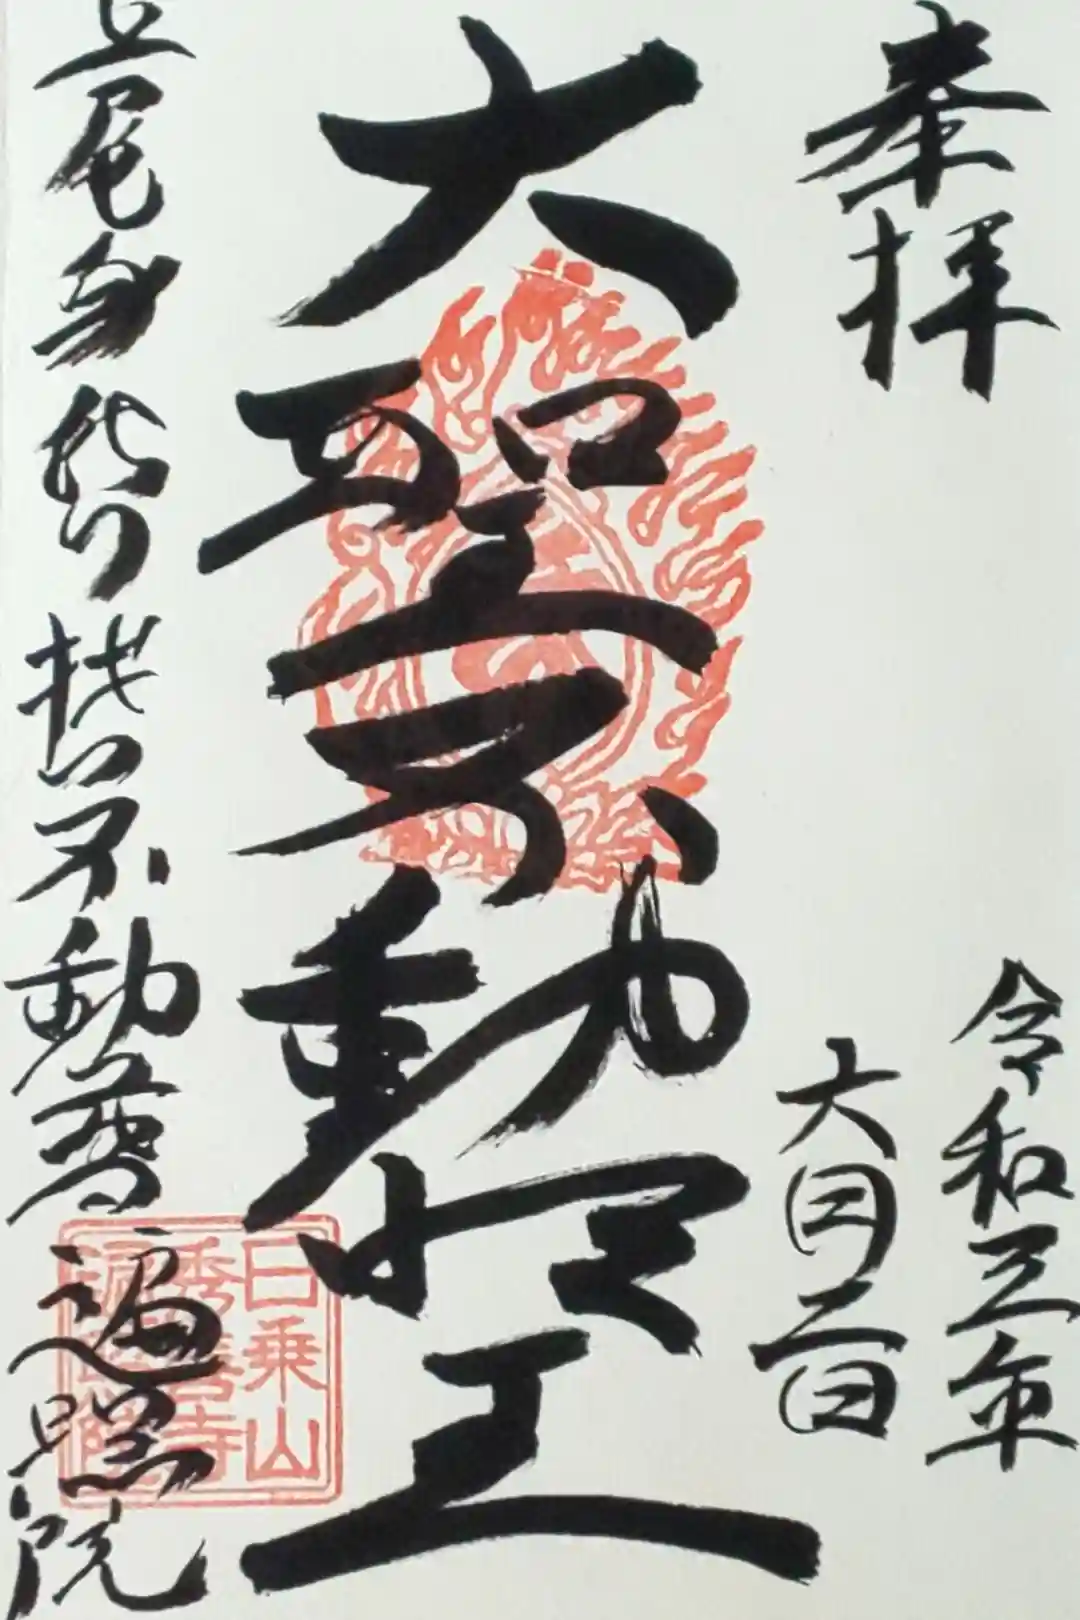 奉拝
令和三年
六月二日
大聖不動明王
上尾身代り
不動尊
遍照院
日乗山
秀善寺
遍照院